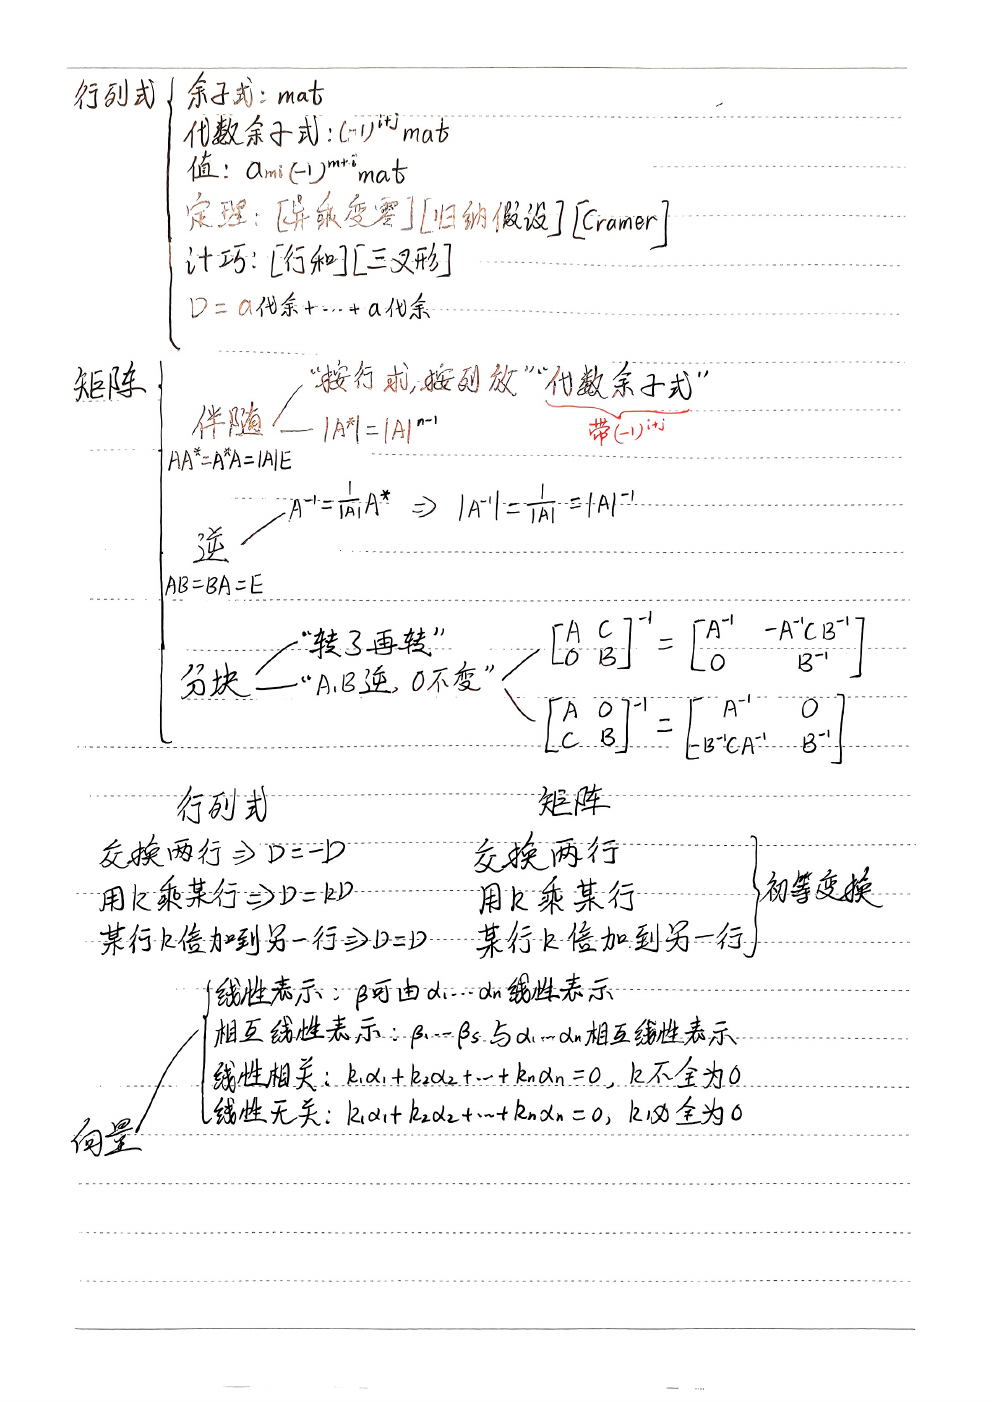 行列式
余子式: mat
代数余子式: (-1)^{i+j} mat
值: a_{mi}(-1)^{m+i} mat
定理: [异乘变零][归纳假设][Cramer]
计巧: [行和][三叉形]
D = a代余+…+a代余
矩阵
“按行求,按列放” “代数余子式”
带(-1)^{i+j}
伴随 |A*| = |A|^{n-1}
AA* = A*A = |A|E
A⁻¹ = 1/|A| A* ⇒ |A⁻¹| = 1/|A| = |A|⁻¹
逆
AB = BA = E
“转了再转”
分块 “A,B逆, O不变”
[A C; O B]⁻¹ = [A⁻¹ -A⁻¹CB⁻¹; O B⁻¹]
[A O; C B]⁻¹ = [A⁻¹ O; -B⁻¹CA⁻¹ B⁻¹]
行列式 矩阵
交换两行 ⇒ D=-D 交换两行
用k乘某行 ⇒ D=kD 用k乘某行 初等变换
某行k倍加到另一行 ⇒ D=D 某行k倍加到另一行
线性表示: β可由α₁…αn线性表示
相互线性表示: β₁…βs与α₁…αn相互线性表示
线性相关: k₁α₁+k₂α₂+…+knαn=0, k不全为0
线性无关: k₁α₁+k₂α₂+…+knαn=0, k全为0
向量